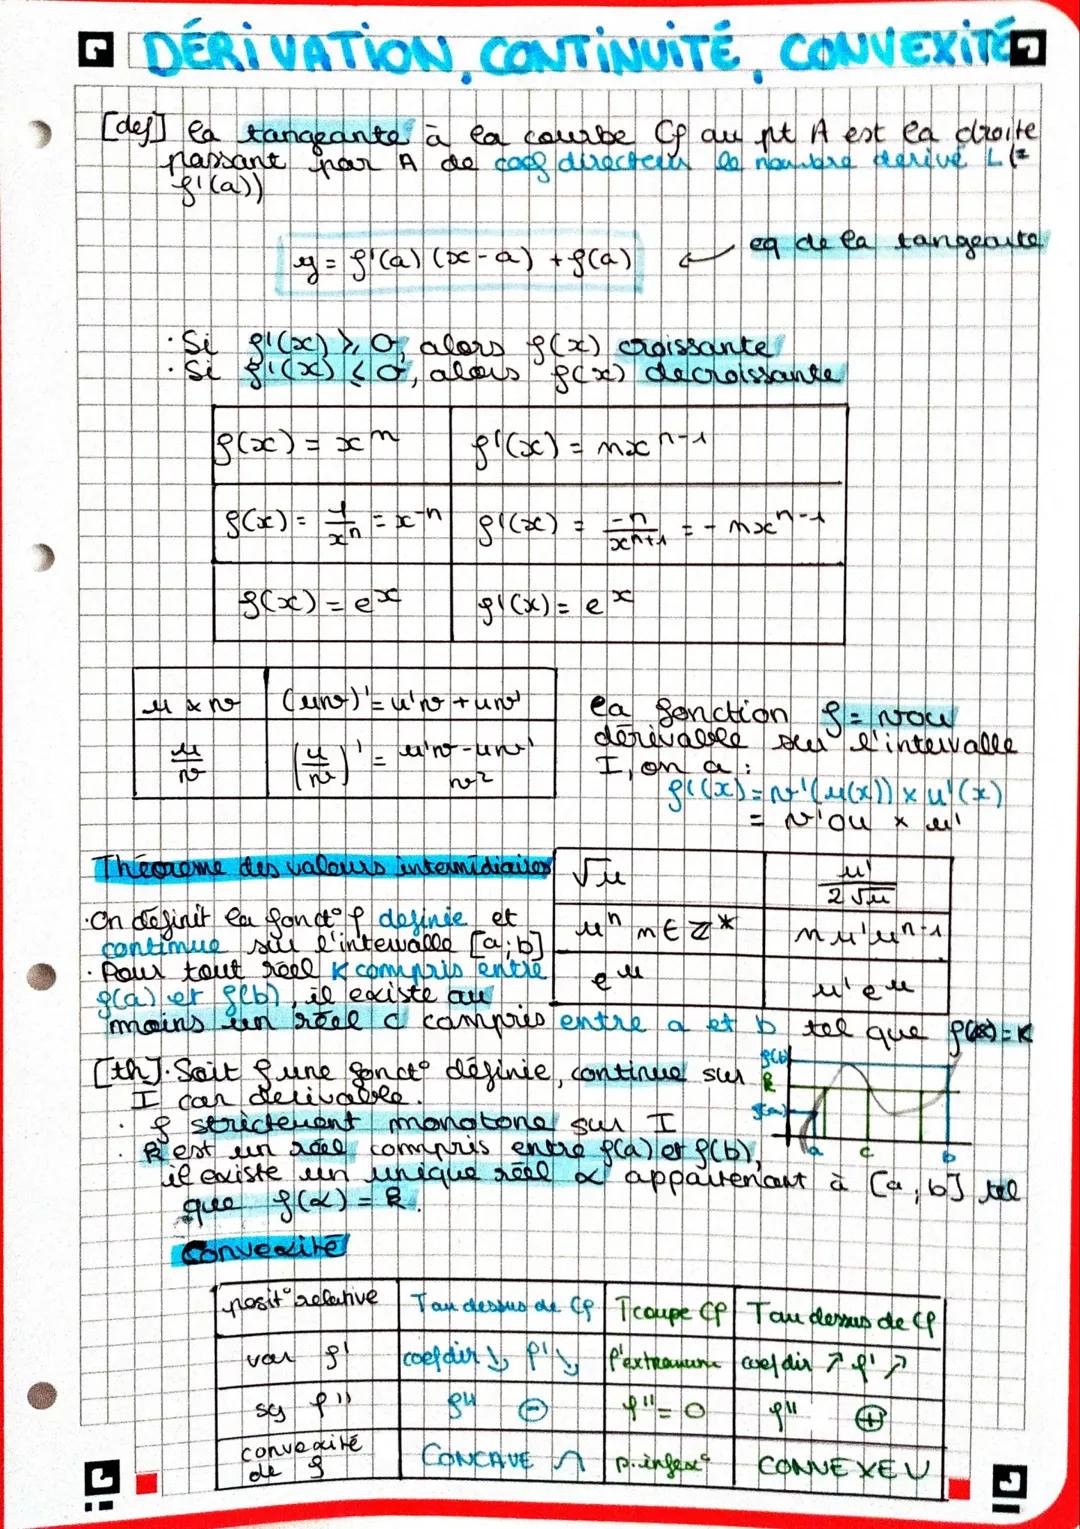 DÉRIVATION, CONTINUITÉ, CONVEXITÉ
[def] la tangeante à la courbe Cf au pt A est la droite
passant par A de coef directeur le nombre dérivé L (=
f'(a))
y = f'(a) (x-a) + f(a)
eq de la tangeante
· Si f'(x) ⩾ 0, alors f(x) croissante
· Si f'(x) ⩽ 0, alors f(x) decroissante
f(x) = x^n f'(x) = nx^n-1
f(x) = 1/x^n = x^-n f'(x) = -n/x^n+1 = - nx^n-1
f(x) = e^x f'(x) = e^x
u x v (uv)' = u'v + uv'
u/v (u/v)' = u'v-uv'/v²
la fonction f = vou
dérivable sur l'intervalle
I, on a :
f'(x) = v'(u(x)) x u'(x)
= v'ou x u'
Théoreme des valeurs intermidiaires
√u u'/2√u
u^n n ∈ Z* nu'u^n-1
e^u u'e^u
· On définit la fonct° f definie et
continue sur l'intervalle [a;b]
· Pour tout réel K compris entre
f(a) et f(b), il existe au
moins un réel c compris entre a et b tel que f( )=K
[th] · Soit f une fonct° définie, continue sur
I car derivable.
· f strictement monotone sur I
· k est un réel compris entre f(a) et f(b),
il existe un unique réel α appartenant à [a;b] tel
que f(α) = k.
f(b)
k
f(a)
a c b
Convexité
posit° relative T au dessus de Cf T coupe Cf T au dessus de Cf
var f' coef dir ↘ f' ↘ f' extremum coef dir ↗ f' ↗
sg f'' f'' ⊖ f'' = 0 f'' ⊕
convexité
de f CONCAVE ∩ p. inflex° CONVEXE U